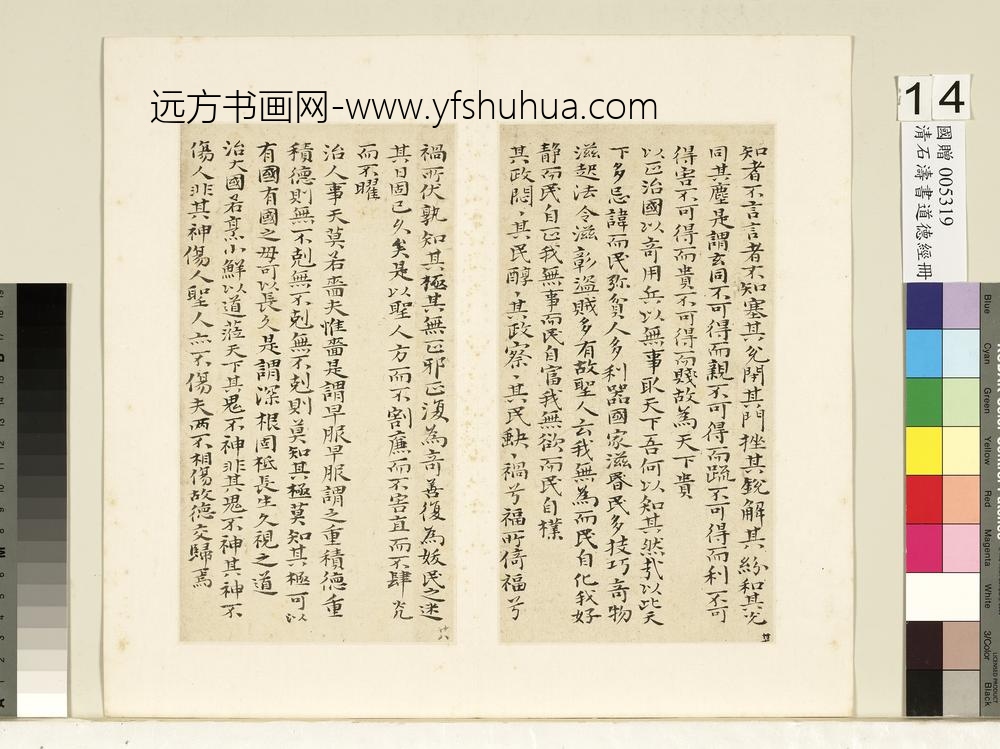 远方书画网-www.yfshuhua.com
14
國贈 005319
清石濤書道德經冊
知者不言言者不知塞其兌閉其門挫其銳解其紛和其光
同其塵是謂玄同不可得而親不可得而疏不可得而利不可
得害不可得而貴不可得而賤故為天下貴
以正治國以奇用兵以無事取天下吾何以知其然哉以此天
下多忌諱而民弥貧人多利器國家滋昏民多技巧奇物
滋起法令滋彰盜賊多有故聖人云我無為而民自化我好
静而民自正我無事而民自富我無欲而民自樸
其政悶〻其民醇〻其政察〻其民缺〻禍兮福所倚福兮
廿五
禍所伏孰知其極其無正邪正復為奇善復為妖民之迷
其日固已久矣是以聖人方而不割廉而不害直而不肆光
而不曜
治人事天莫若嗇夫惟嗇是謂早服早服謂之重積德重
積德則無不剋無不剋無不剋則莫知其極莫知其極可以
有國有國之母可以長久是謂深根固柢長生久視之道
治大國若烹小鮮以道蒞天下其鬼不神非其鬼不神其神不
傷人非其神傷人聖人亦不傷夫兩不相傷故德交歸焉
廿六
Blue
Cyan
Green
Yellow
Red
Magenta
White
3/Color
Black